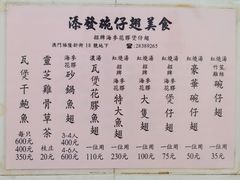 添發碗仔翅美食
招牌海參花膠煲仔翅
澳門福隆新街18號地下
☎:28389265
紅燒竹笙雞絲
碗仔翅
35元
紅燒
豪華碗仔翅
50元
紅燒
煲仔翅
一位用
75元
紅燒海虎
大隻翅
一位用
100元
紅燒
特大魚翅
一位用
230元
濃湯
瓦煲花膠魚翅
一位用
110元
海參花膠
砂鍋魚翅
3-4人
400元
4-6人
600元
靈芝雞骨草茶
枝庄
20元
瓦煲干鮑魚
每只
600元
400元
350元